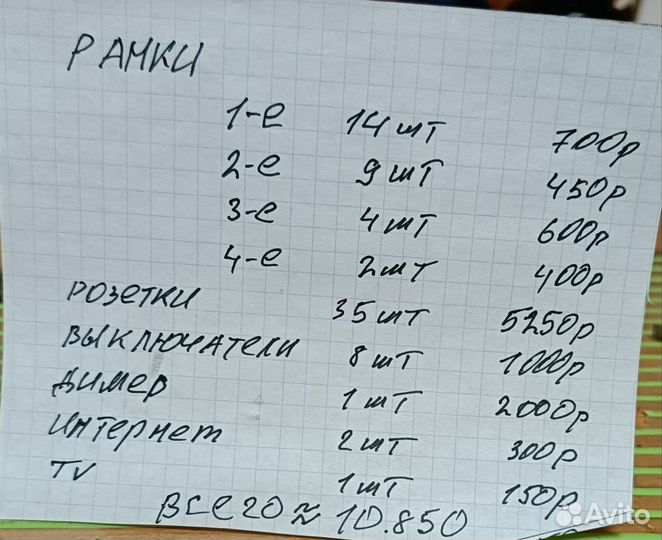 РАМКИ
1-е 14 шт 700р
2-е 9 шт 450р
3-е 4 шт 600р
4-е 2 шт 400р
РОЗЕТКИ 35 шт 5250р
ВЫКЛЮЧАТЕЛИ 8 шт 1000р
ДИМЕР 1 шт 2000р
ИНТЕРНЕТ 2 шт 300р
TV 1 шт 150р
ВСЕГО ≈ 10.850
Avito